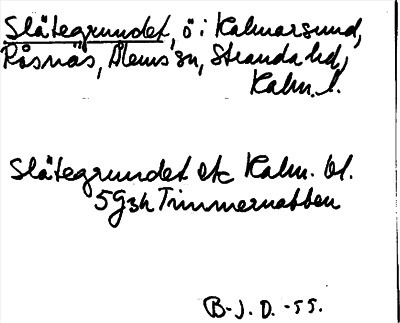 Slätegrundet, ö i Kalmarsund,
Råsnäs, Ålems sn, Stranda hd,
Kalm. l.
Slätegrundet etc Kalm. bl.
5G3h Timmernabben
B-J. O. -55.